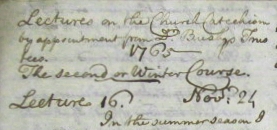 Lectures on the Church Catechism
by appointment from Dr. Bray's Trus
tees. 1765
The second or Winter Course.
Lecture 16. Novr. 24
In the summer season I